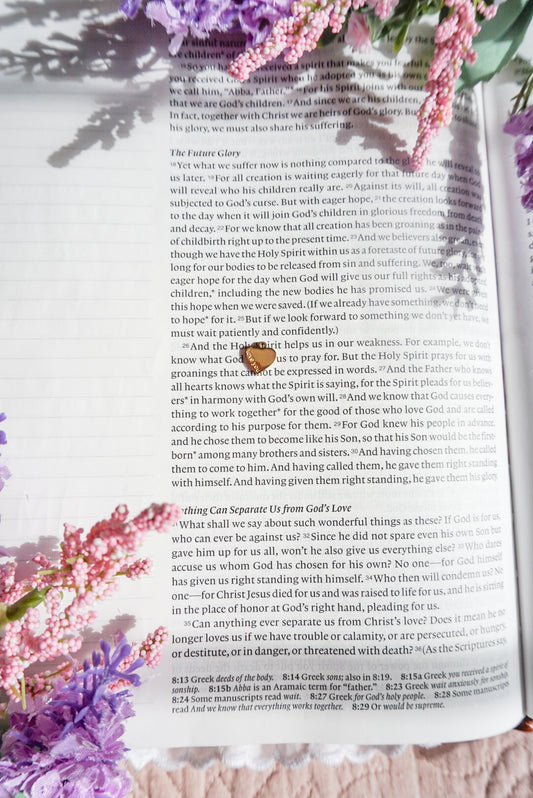 sinful nature
children of
15 So you have received a spirit that makes you fearful
you received God's Spirit when he adopted you as his own
we call him, "Abba, Father." 16 For his Spirit joins with our
that we are God's children. 17 And since we are his children,
In fact, together with Christ we are heirs of God's glory. But
his glory, we must also share his suffering.
The Future Glory
18 Yet what we suffer now is nothing compared to the glory he will reveal to
us later. 19 For all creation is waiting eagerly for that future day when God
will reveal who his children really are. 20 Against its will, all creation was
subjected to God's curse. But with eager hope, 21 the creation looks forward
to the day when it will join God's children in glorious freedom from death
and decay. 22 For we know that all creation has been groaning as in the pains
of childbirth right up to the present time. 23 And we believers also groan, even
though we have the Holy Spirit within us as a foretaste of future glory, for we
long for our bodies to be released from sin and suffering. We, too, wait with
eager hope for the day when God will give us our full rights as his adopted
children,* including the new bodies he has promised us. 24 We were given
this hope when we were saved. (If we already have something, we don't need
to hope* for it. 25 But if we look forward to something we don't yet have, we
must wait patiently and confidently.)
26 And the Holy Spirit helps us in our weakness. For example, we don't
know what God us to pray for. But the Holy Spirit prays for us with
groanings that cannot be expressed in words. 27 And the Father who knows
all hearts knows what the Spirit is saying, for the Spirit pleads for us believ-
ers* in harmony with God's own will. 28 And we know that God causes every-
thing to work together* for the good of those who love God and are called
according to his purpose for them. 29 For God knew his people in advance,
and he chose them to become like his Son, so that his Son would be the first-
born* among many brothers and sisters. 30 And having chosen them, he called
them to come to him. And having called them, he gave them right standing
with himself. And having given them right standing, he gave them his glory.
thing Can Separate Us from God's Love
31 What shall we say about such wonderful things as these? If God is for us,
who can ever be against us? 32 Since he did not spare even his own Son but
gave him up for us all, won't he also give us everything else? 33 Who dares
accuse us whom God has chosen for his own? No one—for God himself
has given us right standing with himself. 34 Who then will condemn us? No
one—for Christ Jesus died for us and was raised to life for us, and he is sitting
in the place of honor at God's right hand, pleading for us.
35 Can anything ever separate us from Christ's love? Does it mean he no
longer loves us if we have trouble or calamity, or are persecuted, or hungry,
or destitute, or in danger, or threatened with death? 36 (As the Scriptures say,
8:13 Greek deeds of the body. 8:14 Greek sons; also in 8:19. 8:15a Greek you received a spirit of
sonship. 8:15b Abba is an Aramaic term for "father." 8:23 Greek wait anxiously for sonship.
8:24 Some manuscripts read wait. 8:27 Greek for God's holy people. 8:28 Some manuscripts
read And we know that everything works together. 8:29 Or would be supreme.